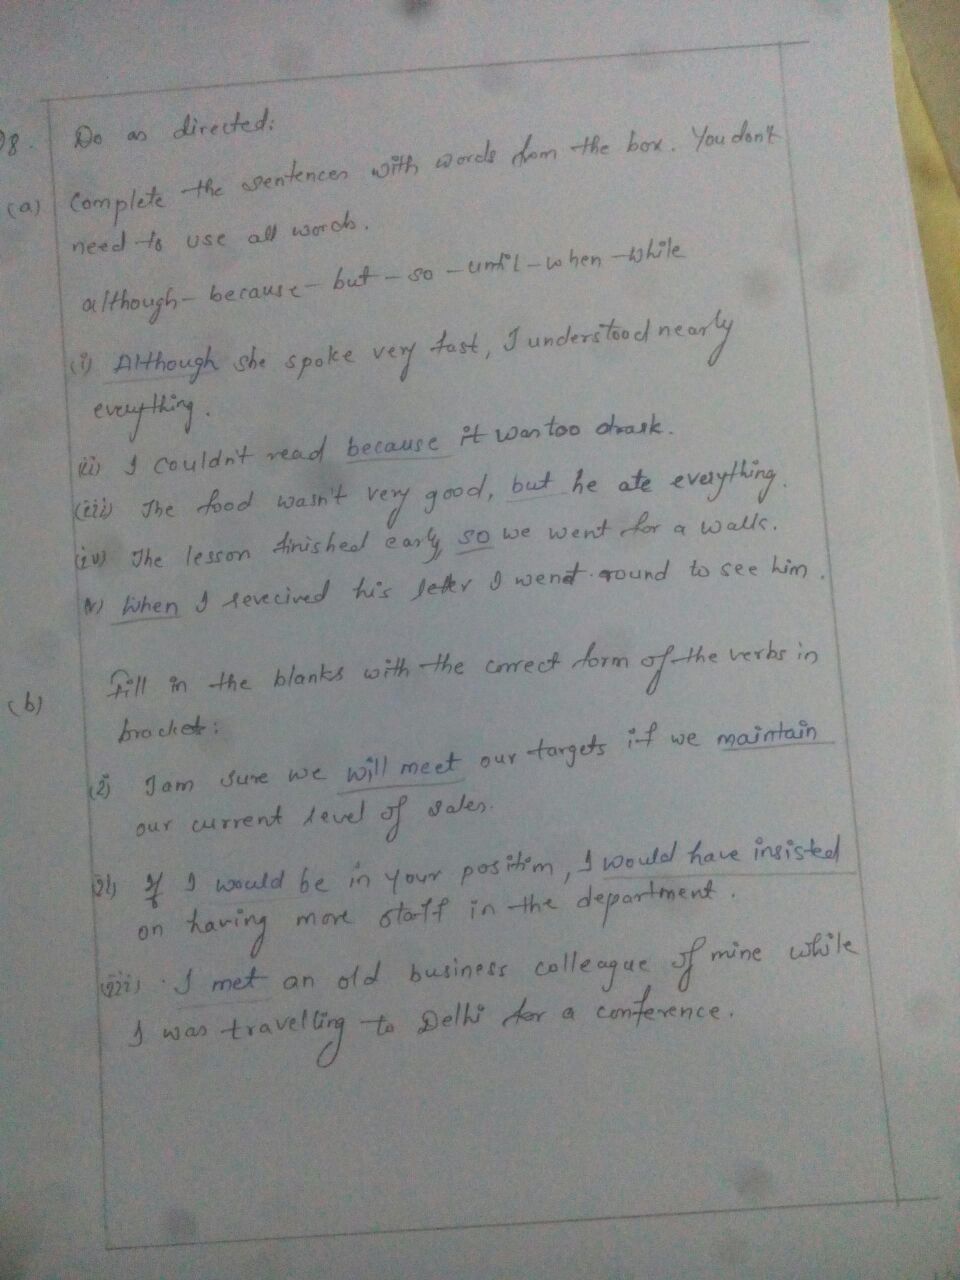 08. Do as directed:
(a) Complete the sentences with words from the box. You don't
need to use all words.
although - because - but - so - until - when - while
(i) Although she spoke very fast, I understood nearly
everything.
(ii) I couldn't read because it was too drask.
(iii) The food wasn't very good, but he ate everything.
(iv) The lesson finished early so we went for a walk.
(v) When I revecived his letter I went round to see him.
(b) Fill in the blanks with the correct form of the verbs in
bracket:
(i) I am sure we will meet our targets if we maintain
our current level of sales.
(ii) If I would be in your position, I would have insisted
on having more staff in the department.
(iii) I met an old business colleague of mine while
I was travelling to Delhi for a conference.